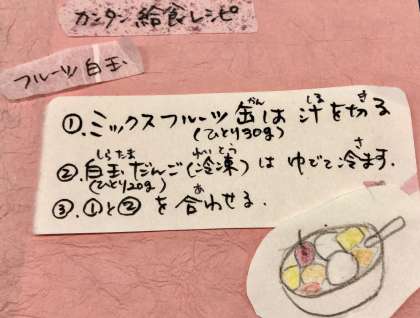 カンタン給食レシピ
フルーツ白玉
①.ミックスフルーツ缶は汁を切る
かん しる き
(ひとり30g)
②.白玉だんご(冷凍)はゆでて冷ます.
しらたま れいとう さ
(ひとり20g)
③.①と②を合わせる.
あ